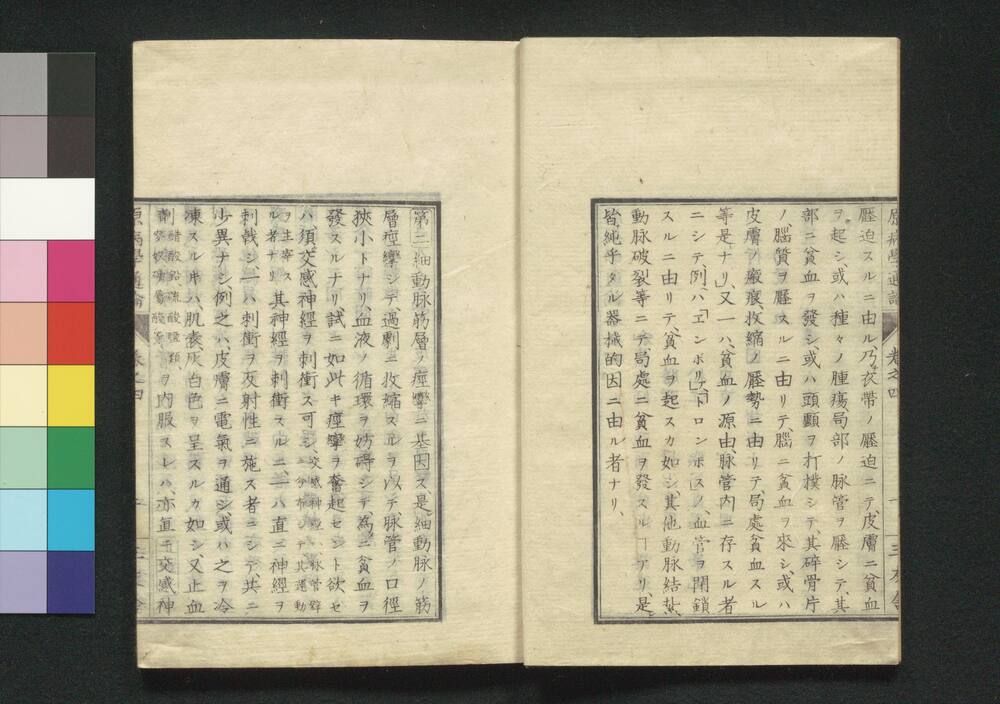 原病學通論 卷之四 三
壓迫スルニ由ル、乃チ衣帶ノ壓迫ニテ、皮膚ニ貧血
ヲ起シ、或ハ種々ノ腫瘍、局部ノ脉管ヲ壓シテ、其
部ニ貧血ヲ發シ、或ハ頭顱ヲ打撲シテ、其碎骨片
ノ腦質ヲ壓スルニ由リテ、腦ニ貧血ヲ來シ、或ハ
皮膚ノ瘢痕、收縮ノ壓勢ニ由リテ、局處貧血スル
等是ナリ、又一ハ、貧血ノ源由、脉管内ニ存スル者
ニシテ、例ハ「エンボリア」「トロンボス」ノ、血管ヲ閉鎖
スルニ由リテ、貧血ヲ起スカ如シ、其他動脉結紮、
動脉破裂等ニテ、局處ニ貧血ヲ發スルヿアリ、是
皆純乎タル器械的因ニ由ル者ナリ、
第二細動脉筋層ノ痙攣ニ基因ス、是細動脉ノ筋
層痙攣シテ、過劇ニ收縮スルヲ以テ、脉管ノ口徑
狹小トナリ、血液ノ循環ヲ妨碍シテ、爲ニ貧血ヲ
發スルナリ、試ニ如此キ痙攣ヲ奮起セント欲セ
ハ、須ク交感神經ヲ刺衝ス可シ、交感神經ハ脉管
ニ分布シテ其運動
ヲ主宰ス
ル者ナリ
其神經ヲ刺衝スルニ、一ハ直ニ神經ヲ
刺戟シ、一ハ刺衝ヲ反射性ニ施ス者ニシテ、共ニ
少異ナシ、例之ハ、皮膚ニ電氣ヲ通シ、或ハ之ヲ冷
凍スルキハ、肌表灰白色ヲ呈スルカ如シ、又止血
劑醋酸鉛、硫酸
ヲ内服スレハ、亦直チニ交感神
原病學通論 卷之四